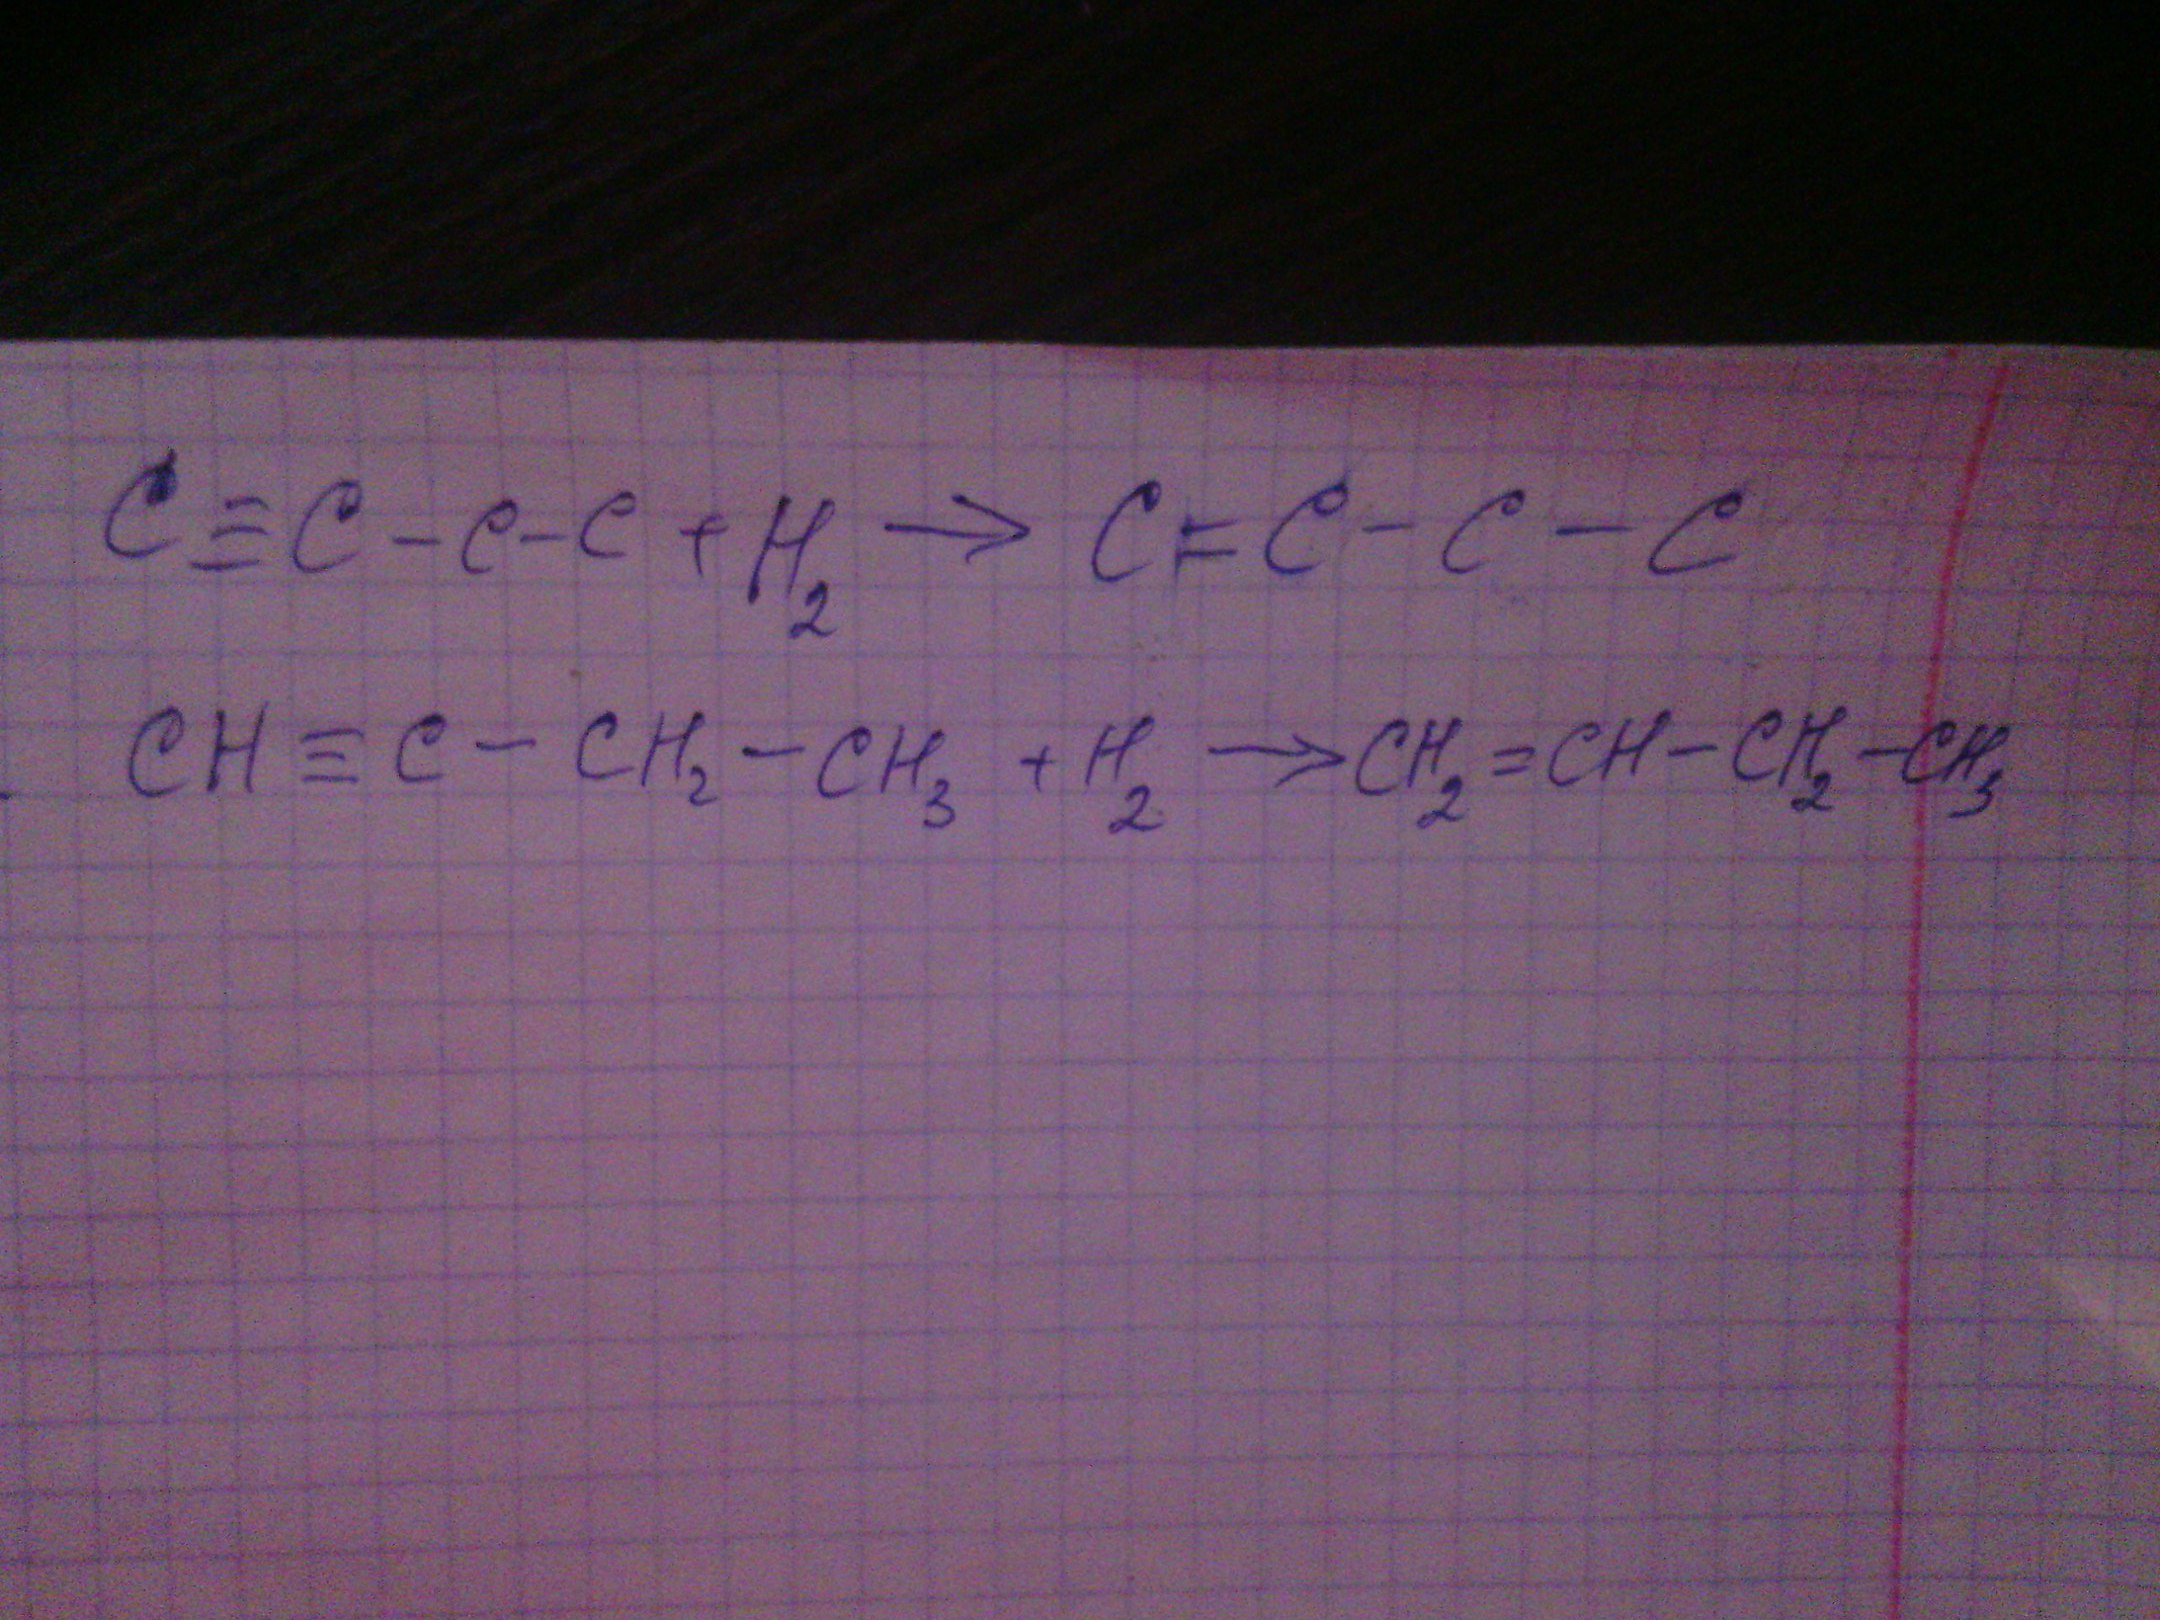 C≡C-C-C+H₂→C=C-C-C
CH≡C-CH₂-CH₃+H₂→CH₂=CH-CH₂-CH₃